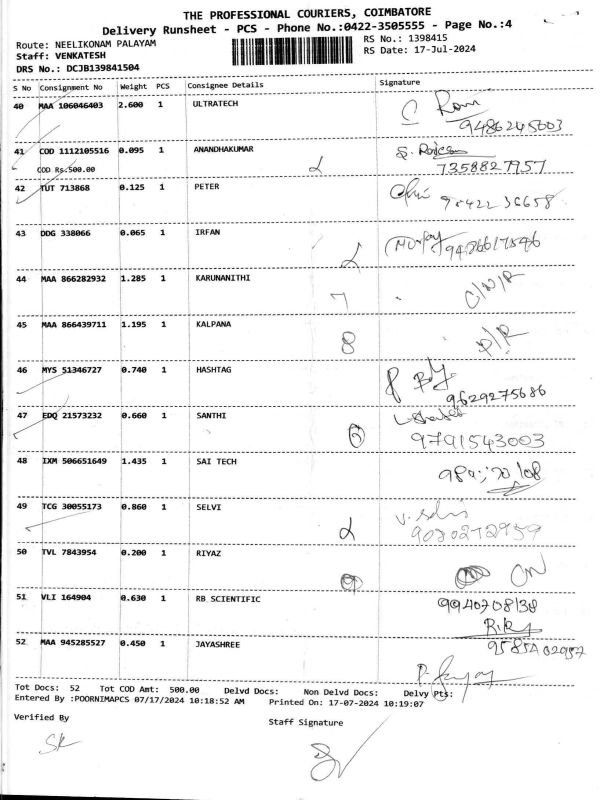 THE PROFESSIONAL COURIERS, COIMBATORE
Delivery Runsheet - PCS - Phone No.:0422-3505555 - Page No.:4
Route: NEELIKONAM PALAYAM RS No.: 1398415
Staff: VENKATESH RS Date: 17-Jul-2024
DRS No.: DCJB139841504
S No Consignment No Weight PCS Consignee Details Signature
40 MAA 106046403 2.600 1 ULTRATECH
9486245003
41 COD 1112105516 0.095 1 ANANDHAKUMAR
COD Rs.500.00 7358827957
42 TUT 713868 0.125 1 PETER
43 DDG 338066 0.065 1 IRFAN
44 MAA 866282932 1.285 1 KARUNANITHI 7
45 MAA 866439711 1.195 1 KALPANA 8 D/R
46 MYS 51346727 0.740 1 HASHTAG
9629275686
47 EDQ 21573232 0.660 1 SANTHI 6
9791543003
48 IXM 506651649 1.435 1 SAI TECH
49 TCG 30055173 0.860 1 SELVI
50 TVL 7843954 0.200 1 RIYAZ
51 VLI 164904 0.630 1 RB SCIENTIFIC 9940708138
52 MAA 945285527 0.450 1 JAYASHREE
Tot Docs: 52 Tot COD Amt: 500.00 Delvd Docs: Non Delvd Docs: Delvy Pts:
Entered By :POORNIMAPCS 07/17/2024 10:18:52 AM Printed On: 17-07-2024 10:19:07
Verified By Staff Signature